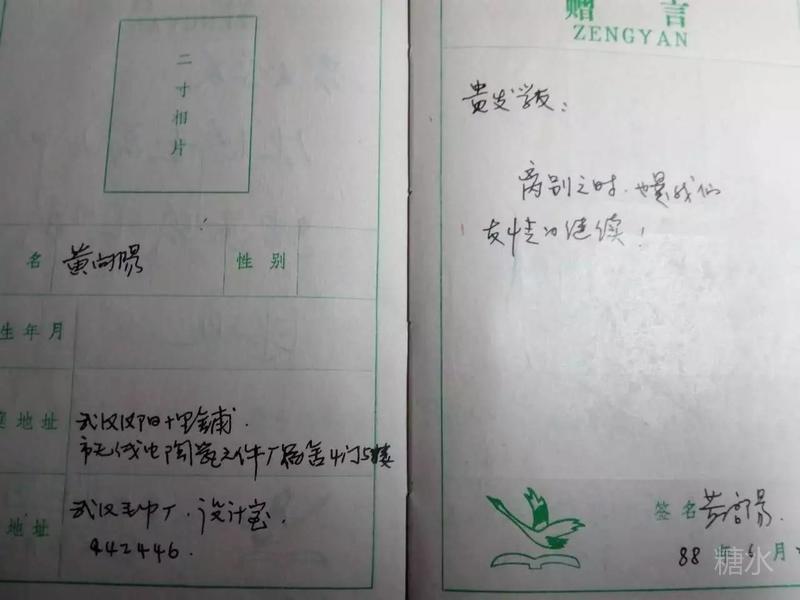 二寸相片
名 黄向陽 性别
生年月
地址 武汉汉阳十里铺.
市无线电陶瓷元件厂宿舍4门5楼
地址 武汉毛巾厂.设计室.
442446.
赠言
ZENGYAN
贵发学友：
离别之时.也是我们
友情的继续！
签名 黄向陽.
88年6月
糖水